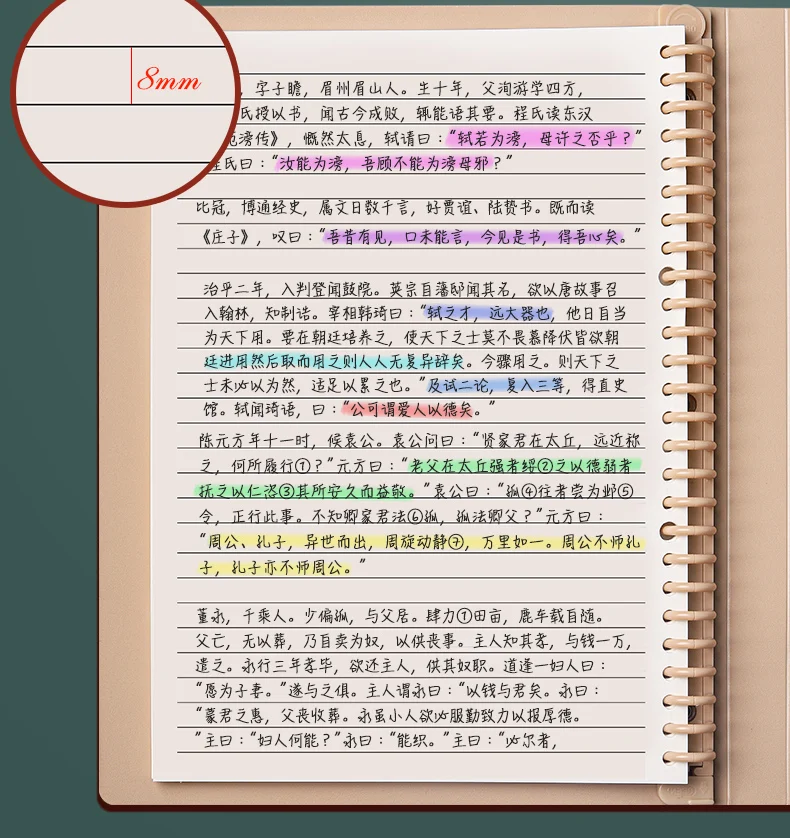 8mm
，字子瞻，眉州眉山人。生十年，父洵游学四方，
氏授以书，闻古今成败，辄能语其要。程氏读东汉
滂传》，慨然太息，轼请曰：“轼若为滂，母许之否乎？”
程氏曰：“汝能为滂，吾顾不能为滂母邪？”
比冠，博通经史，属文日数千言，好贾谊、陆贽书。既而读
《庄子》，叹曰：“吾昔有见，口未能言，今见是书，得吾心矣。”
治平二年，入判登闻鼓院。英宗自藩邸闻其名，欲以唐故事召
入翰林，知制诰。宰相韩琦曰：“轼之才，远大器也，他日自当
为天下用。要在朝廷培养之，使天下之士莫不畏慕降伏皆欲朝
廷进用然后取而用之则人人无复异辞矣。今骤用之。则天下之
士未必以为然，适足以累之也。”及试二论，复入三等，得直史
馆。轼闻琦语，曰：“公可谓爱人以德矣。”
陈元方年十一时，候袁公。袁公问曰：“贤家君在太丘，远近称
之，何所履行①？”元方曰：“老父在太丘强者绥②之以德弱者
抚之以仁恣③其所安久而益敬。”袁公曰：“孤④往者尝为邺⑤
令，正行此事。不知卿家君法⑥孤，孤法卿父？”元方曰：
“周公、孔子，异世而出，周旋动静⑦，万里如一。周公不师孔
子，孔子亦不师周公。”
董永，千乘人。少偏孤，与父居。肆力①田亩，鹿车载自随。
父亡，无以葬，乃自卖为奴，以供丧事。主人知其孝，与钱一万，
遣之。永行三年孝毕，欲还主人，供其奴职。道逢一妇人曰：
“愿为子妻。”遂与之俱。主人谓永曰：“以钱与君矣。永曰：
“蒙君之惠，父丧收葬。永虽小人欲必服勤致力以报厚德。
”主曰：“妇人何能？”永曰：“能织。”主曰：“必尔者，